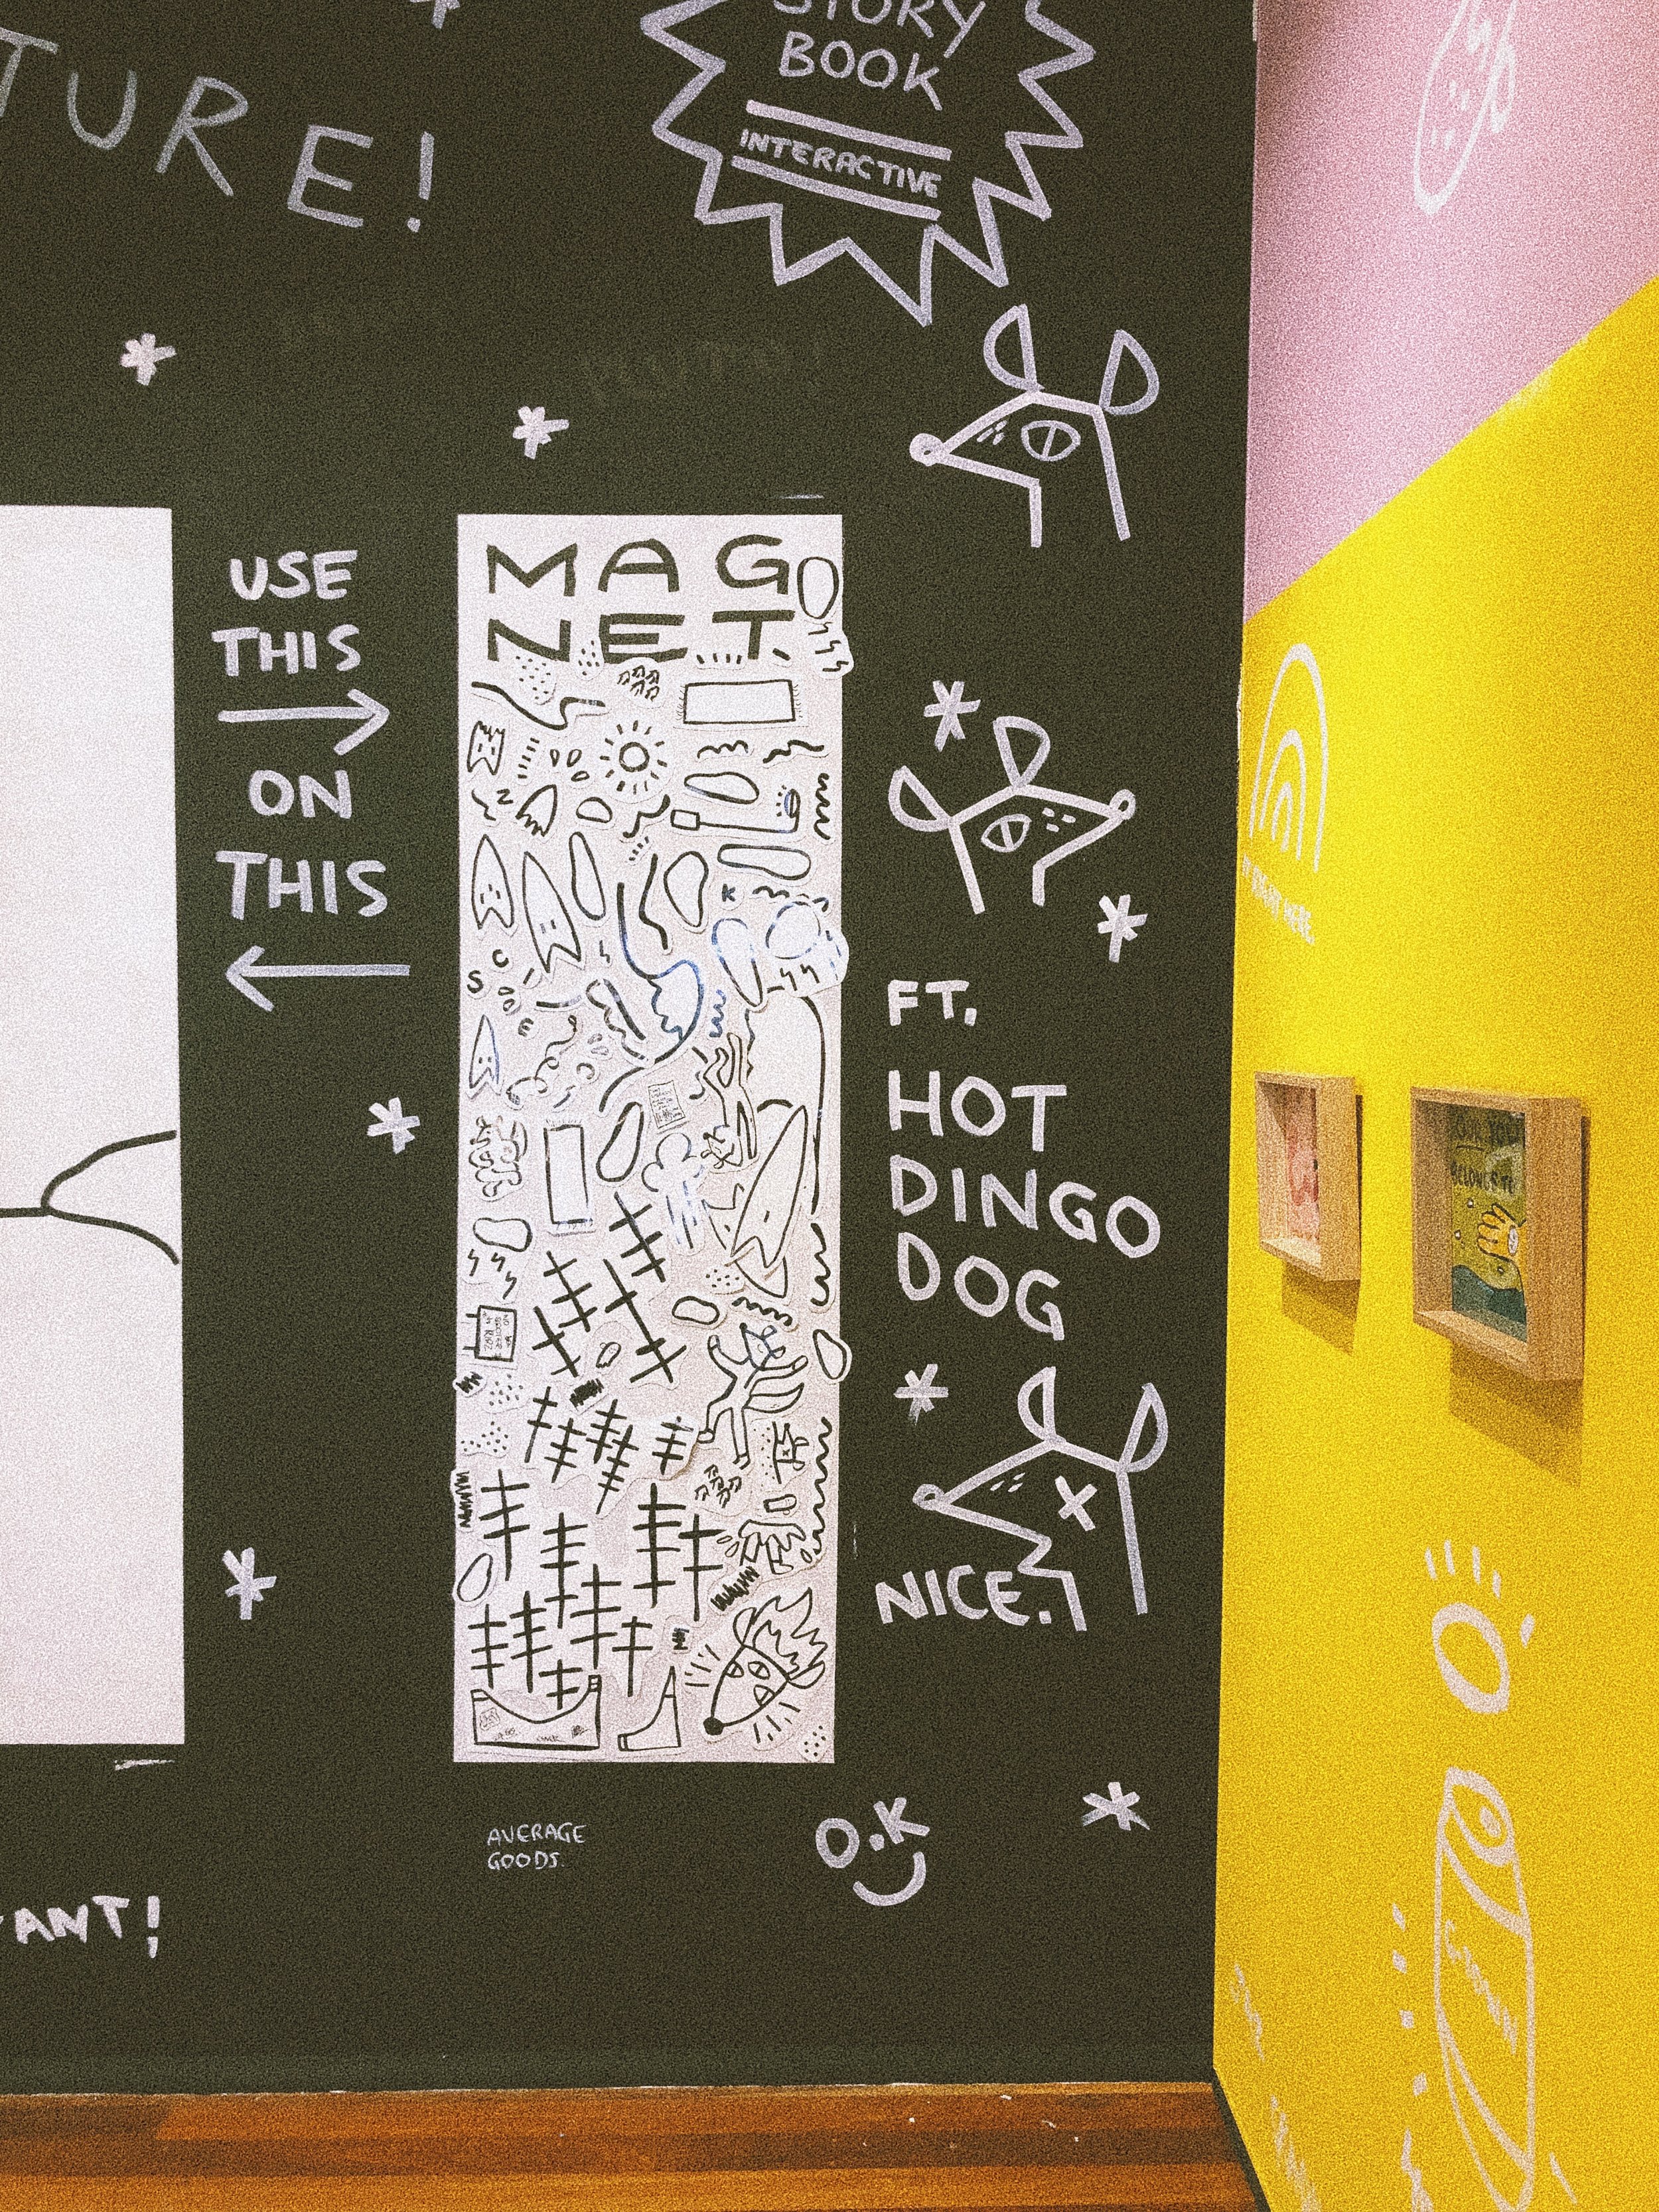 TURE!
STORY
BOOK
INTERACTIVE
USE
THIS
ON
THIS
MAG
NET.
FT.
HOT
DINGO
DOG
NICE.
AVERAGE
GOODS.
O.K
ANT!